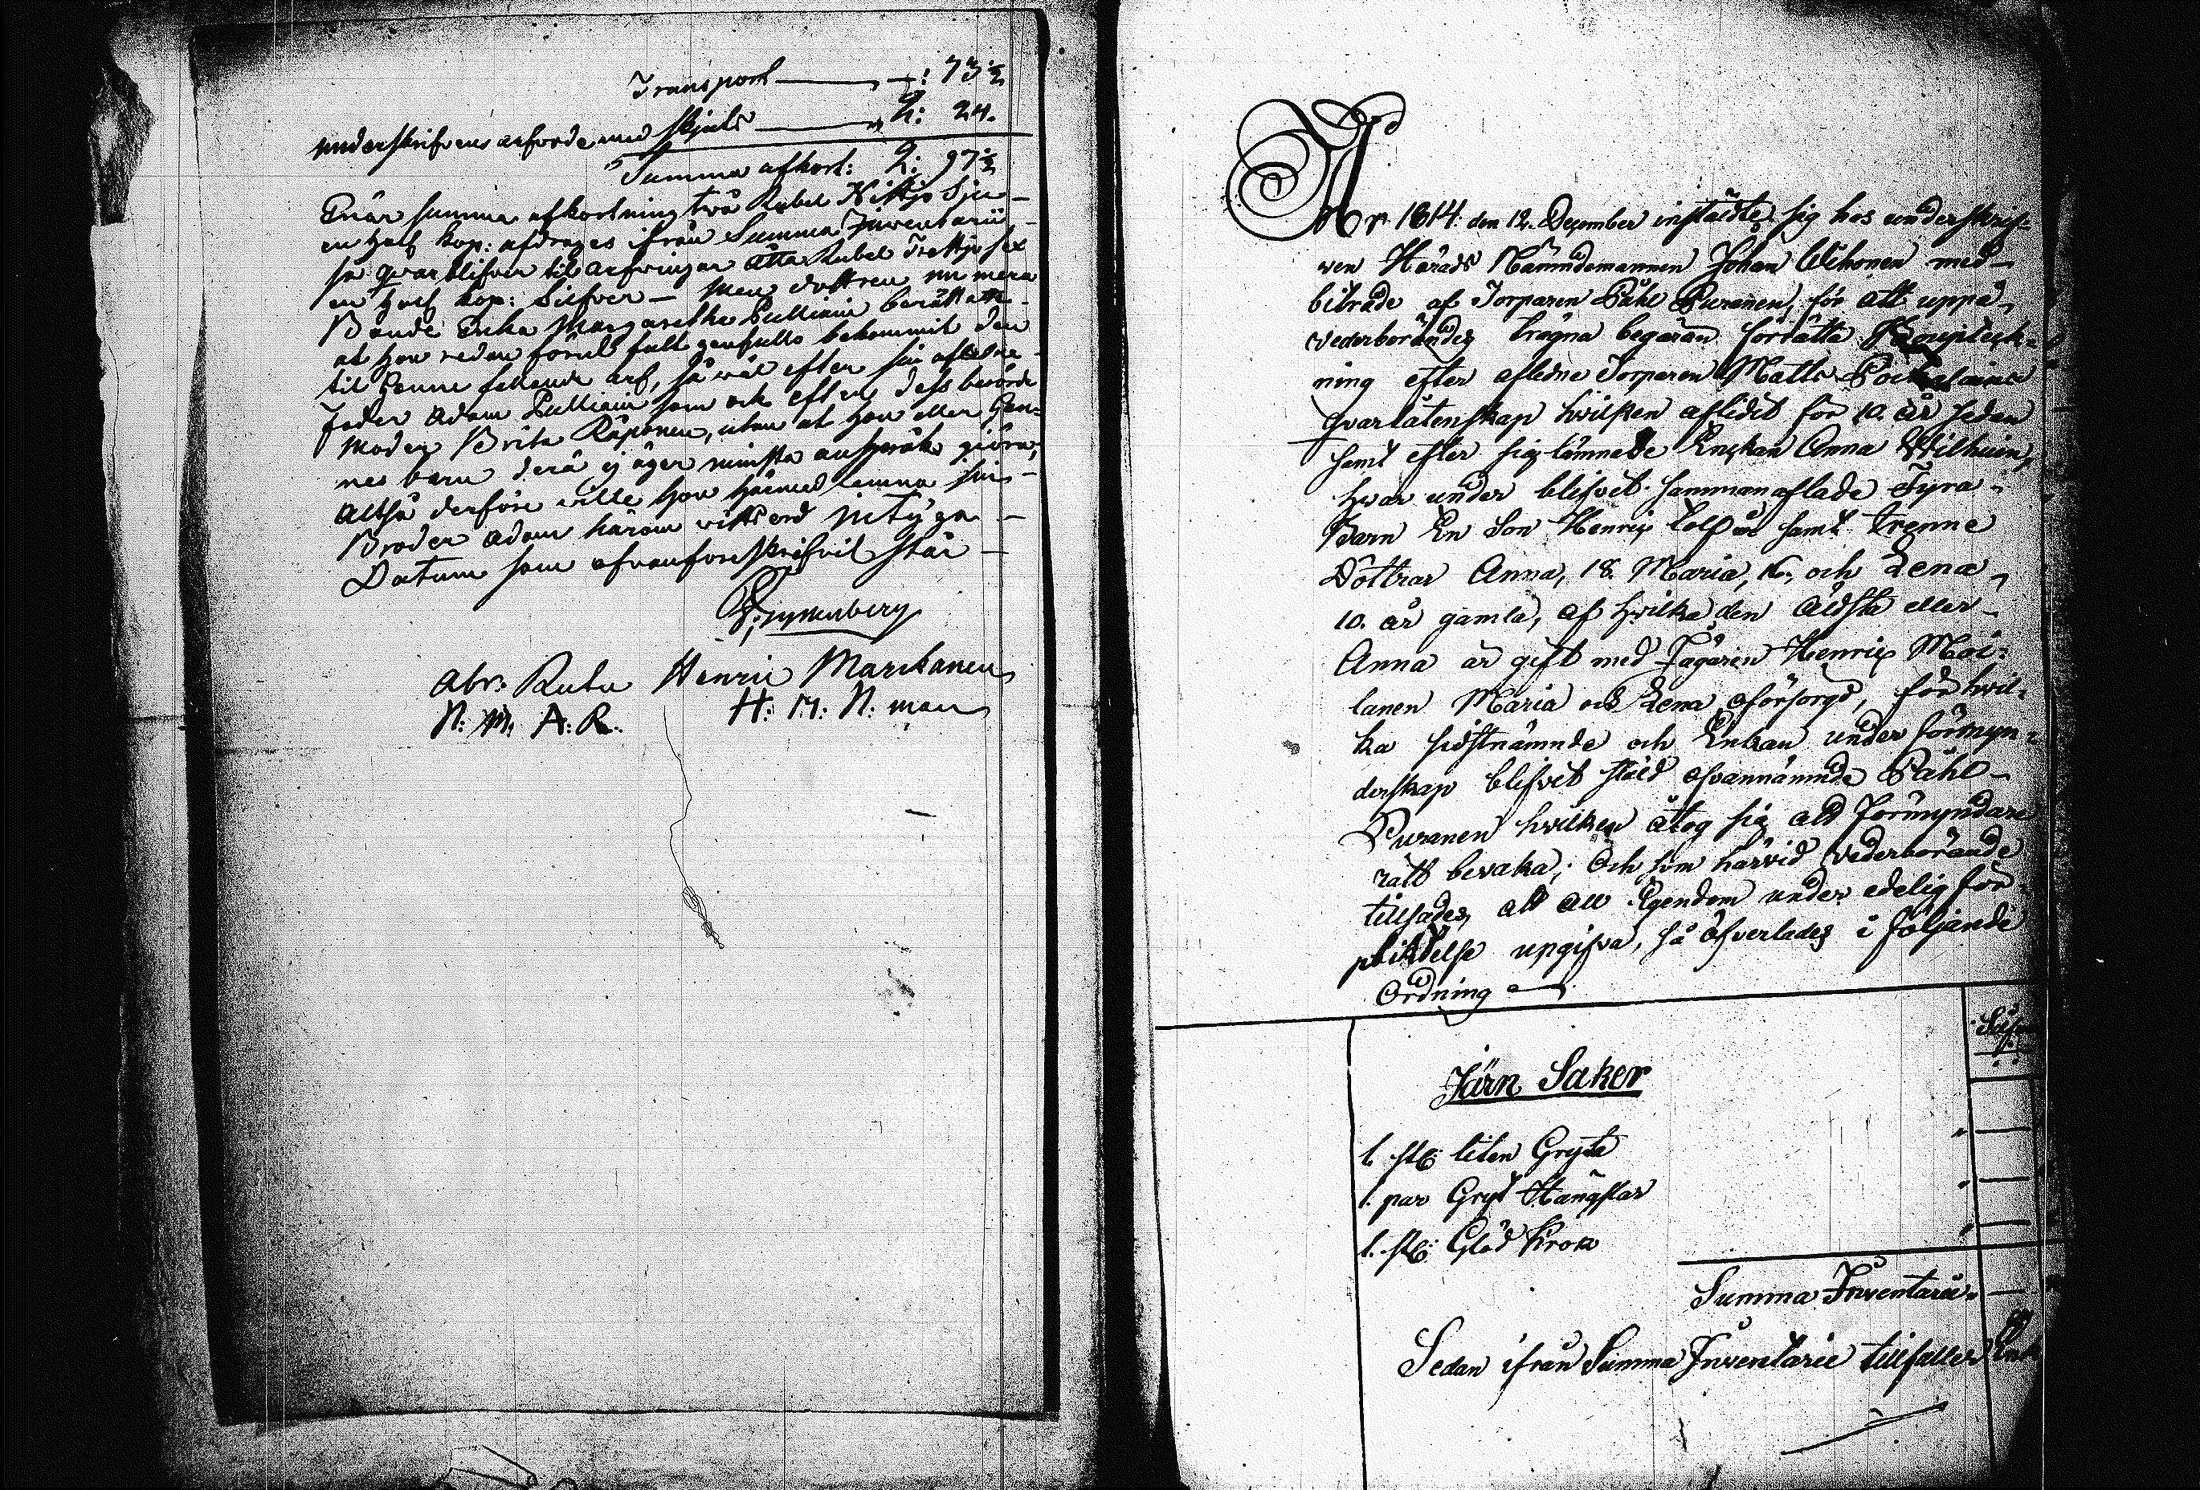 Transport — –: 73½
underskrifvens arfvode med skjuts — 2: 24.
Summa afkort: 2: 97½
Enär summa afkortning två Rubel Nittjo Sju
en half kop: afdrages ifrån Summa Inventarii
så qvarblifver til arfvingar åtta Rubel Trettjo sex
en half kop: Silfver — Men dottren nu mera
Bonde Enka Margaretha Pulliain berättade
at hon redan förut fult bekommit den
til henne fallande arf, så väl efter sin aflidne
Fader Adam Pulliain som ock efter dess
Moder Brita Räpönen, utan at hon eller hen-
nes barn derå ej äger minsta anspråk giöra,
Altså derföre ville hon härmed lemna sin
Broder Adam härom vittsord Intygar
Datum som ofvanföreskrifvit står
Abr: Rutu Henric Marckanen
N: M: A: R: H: M: N: man
År 1814 den 12. December instäldte sig hos underskrif-
ven Härads Nämndemannen Johan Wihonen med
biträde af Torparen Påhl Puranen, för att uppå
vederbörandes trägna begäran förrätta Boupteck-
ning efter aflidne Torparen Matts
qvarlåtenskap hvilken aflidit för 10. år sedan
samt efter sig lämnade Enckan Anna Wilhuin,
hvar under blifvit sammanaflade Fyra
Barn En Son Henric tolf år samt trenne
Döttrar Anna, 18. Maria, 16., och Lena
10. år gamla, af hvilka den äldsta eller
Anna är gift med Jägaren Henric Moi-
lanen Maria och Lena oförsorgd, för hvil-
ka sidstnämnde och Enkan under förmyn-
derskap blifvit stäld ofvannämnde Påhl
Puranen hvilken åtog sig att Förmyndare
rätt bevaka; Och som härvid vederbörande
tillsades, att all Egendom under edelig för-
pliktelse upgifva, så öfverlades i följande
Ordning
Järn Saker
1. st: liten Gryta
1. par Gryt Hängslar
1. st: Glöd Krok
Summa Inventarii
Sedan ifrån Summa Inventarie tillfaller Enk